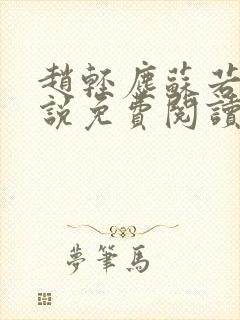 趙輕塵蘇若
說免費閱讀
夢筆馬